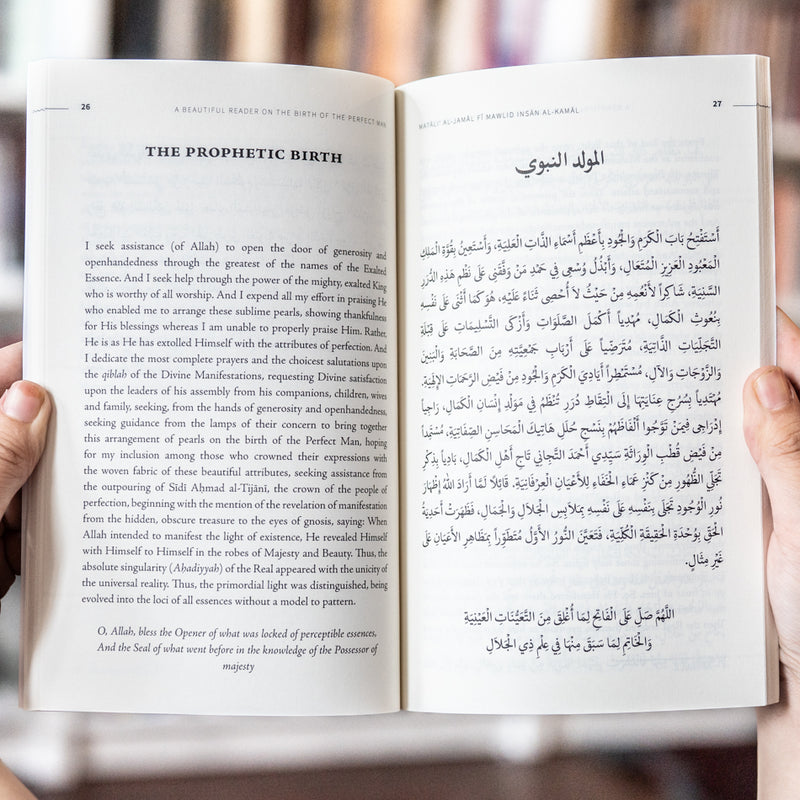 26
A BEAUTIFUL READER ON THE BIRTH OF THE PERFECT MAN
THE PROPHETIC BIRTH
I seek assistance (of Allah) to open the door of generosity and
openhandedness through the greatest of the names of the Exalted
Essence. And I seek help through the power of the mighty, exalted King
who is worthy of all worship. And I expend all my effort in praising He
who enabled me to arrange these sublime pearls, showing thankfulness
for His blessings whereas I am unable to properly praise Him. Rather,
He is as He has extolled Himself with the attributes of perfection. And
I dedicate the most complete prayers and the choicest salutations upon
the qiblah of the Divine Manifestations, requesting Divine satisfaction
upon the leaders of his assembly from his companions, children, wives
and family, seeking, from the hands of generosity and openhandedness,
seeking guidance from the lamps of their concern to bring together
this arrangement of pearls on the birth of the Perfect Man, hoping
for my inclusion among those who crowned their expressions with
the woven fabric of these beautiful attributes, seeking assistance from
the outpouring of Sīdī Aḥmad al-Tijānī, the crown of the people of
perfection, beginning with the mention of the revelation of manifestation
from the hidden, obscure treasure to the eyes of gnosis, saying: When
Allah intended to manifest the light of existence, He revealed Himself
with Himself to Himself in the robes of Majesty and Beauty. Thus, the
absolute singularity (Aḥadiyyah) of the Real appeared with the unicity of
the universal reality. Thus, the primordial light was distinguished, being
evolved into the loci of all essences without a model to pattern.
O, Allah, bless the Opener of what was locked of perceptible essences,
And the Seal of what went before in the knowledge of the Possessor of
majesty
MAṬĀLIʿ AL-JAMĀL FĪ MAWLID INSĀN AL-KAMĀL
27
المولد النبوي
أَسْتَفْتِحُ بَابَ الْكَرَمِ وَالْجُودِ بِأَعْظَمِ أَسْمَاءِ الذَّاتِ الْعَلِيَّةِ، وَأَسْتَعِينُ بِقُوَّةِ الْمَلِكِ
الْمَعْبُودِ الْعَزِيزِ الْمُتَعَالِ، وَأَبْذُلُ وُسْعِي فِي حَمْدِ مَنْ وَفَّقَنِي عَلَى نَظْمِ هَذِهِ الدُّرَرِ
السَّنِيَّةِ، شَاكِراً لِأَنْعُمِهِ مِنْ حَيْثُ لاَ أُحْصِي ثَنَاءً عَلَيْهِ، هُوَ كَمَا أَثْنَى عَلَى نَفْسِهِ
بِنُعُوتِ الْكَمَالِ، مُهْدِياً أَكْمَلَ الصَّلَوَاتِ وَأَزْكَى التَّسْلِيمَاتِ عَلَى قِبْلَةِ
التَّجَلِّيَاتِ الذَّاتِيَّةِ، مُتَرَضِّياً عَلَى أَرْبَابِ جَمْعِيَّتِهِ مِنَ الصَّحَابَةِ وَالْبَنِينَ
وَالزَّوْجَاتِ وَالآلِ، مُسْتَمْطِراً أَيَادِيَ الْكَرَمِ وَالْجُودِ مِنْ فَيْضِ الرَّحَمَاتِ الإِلَهِيَّةِ،
مُهْتَدِياً بِسُرُجِ عِنَايَتِهَا إِلَى الْتِقَاطِ دُرَرٍ تُنْظَمُ فِي مَوْلِدِ إِنْسَانِ الْكَمَالِ، رَاجِياً
إِدْرَاجِي فِيمَنْ تَوَّجُوا أَلْفَاظَهُمْ بِنَسْجِ حُلَلِ هَاتِيكَ الْمَحَاسِنِ الصِّفَاتِيَّةِ، مُسْتَمِدّاً
مِنْ فَيْضِ قُطْبِ الْوِرَاثَةِ سَيِّدِي أَحْمَدَ التِّجَانِي تَاجِ أَهْلِ الْكَمَالِ، بَادِياً بِذِكْرِ
تَجَلِّي الظُّهُورِ مِنْ كَنْزِ عَمَاءِ الْخَفَاءِ لِلأَعْيَانِ الْعِرْفَانِيَّةِ، قَائِلاً لَمَّا أَرَادَ اللهُ إِظْهَارَ
نُورِ الْوُجُودِ تَجَلَّى بِنَفْسِهِ عَلَى نَفْسِهِ بِمَلاَبِسِ الْجَلاَلِ وَالْجَمَالِ، فَظَهَرَتْ أَحَدِيَّةُ
الْحَقِّ بِوَحْدَةِ الْحَقِيقَةِ الْكُلِّيَّةِ، فَتَعَيَّنَ النُّورُ الأَوَّلُ مُتَطَوِّراً بِمَظَاهِرِ الأَعْيَانِ عَلَى
غَيْرِ مِثَالٍ.
اللَّهُمَّ صَلِّ عَلَى الْفَاتِحِ لِمَا أُغْلِقَ مِنَ التَّعَيُّنَاتِ الْعَيْنِيَّةِ
وَالْخَاتِمِ لِمَا سَبَقَ مِنْهَا فِي عِلْمِ ذِي الْجَلاَلِ